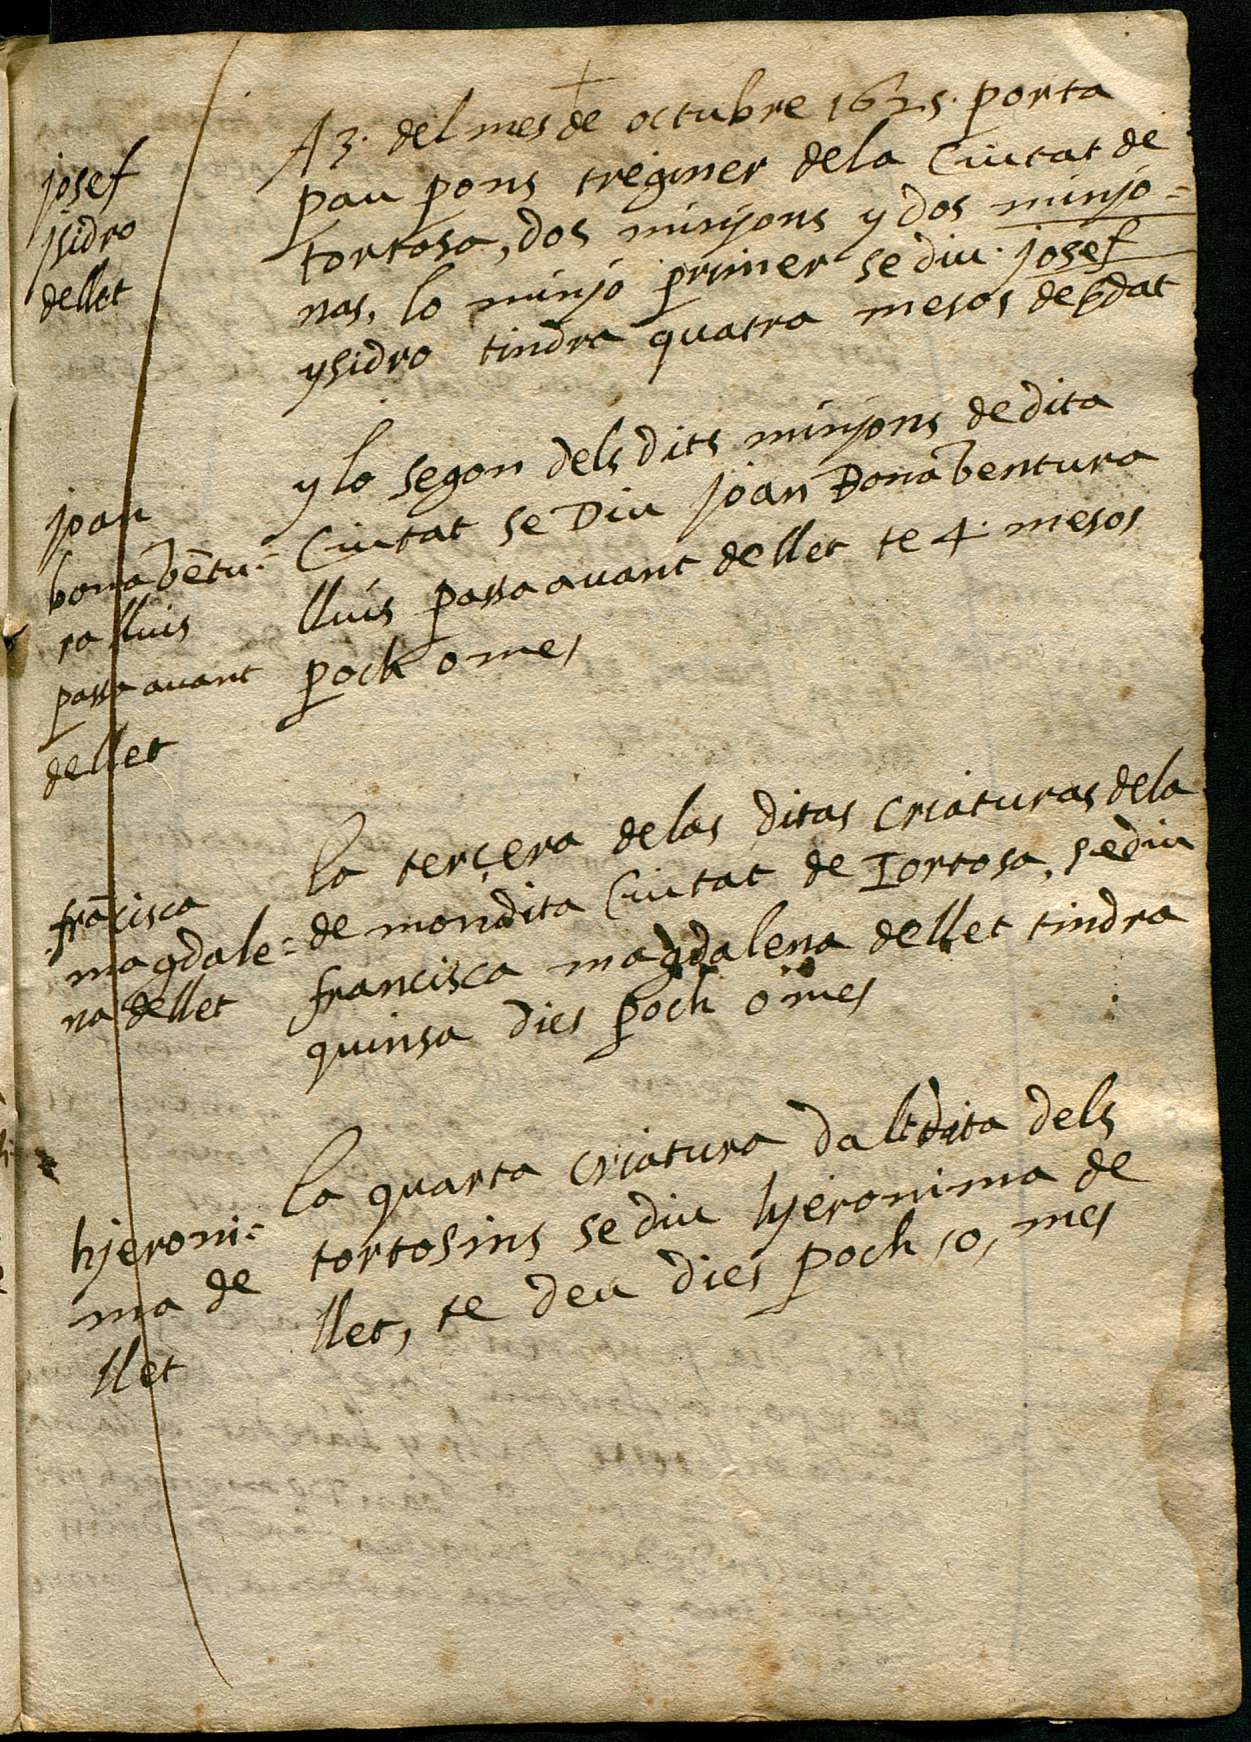 josef
jsidro
dellet
A 3. del mes de octubre 1625. porta
pau pons treginer dela Ciutat de
tortosa, dos minyons y dos minyo=
nas, lo minyo primer se diu. josef
ysidro tindra quatra mesos de edat
joan
bonabẽtu=
ra lluis
passa avant
dellet
y lo segon dels dits minyons de dita
Ciutat se Diu joan Bonabentura
lluis passa avant dellet te 4. mesos
poch o mes
frãcisca
magdale=
na dellet
la terçera de las ditas Criaturas de la
de mondita Ciutat de Tortosa, se diu
francisca magdalena dellet tindra
quinsa dies poch o mes
hjeroni=
ma de
llet
la quarta criatura dalt dita dels
tortosins se diu hjeronima de
llet, te deu dies poch, o, mes